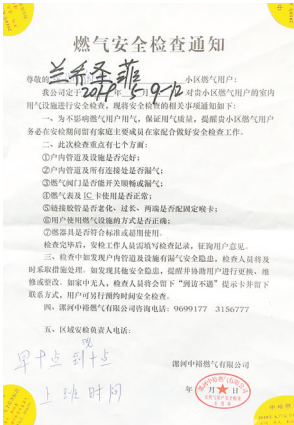 燃气安全检查通知
尊敬的 兰亭圣菲 小区燃气用户:
我公司定于 2019 年 5月9-12 对贵小区燃气用户的室内
用气设施进行安全检查。现将安全检查的相关事项通知如下:
一、为不影响燃气用户用气,保证用气质量,提醒贵小区燃气用户
务必在安检期间留有家庭主要成员在家配合做好安全检查工作。
二、此次检查重点有七个方面:
①户内管道及设施是否完好;
②户内管道及所有连接处是否漏气;
③燃气阀门是否能开关顺畅或漏气;
④燃气表及IC卡使用是否正常;
⑤链接胶管是否老化、过长、两端是否配固定喉卡;
⑥用户使用燃气设施的方式是否正确;
⑦燃器具是否符合标准或超期使用。
检查完毕后,安检工作人员须填写检查记录,征询用户意见。
三、检查中如发现户内管道及设施有漏气安全隐患,检查人员将及
时采取措施处理。如发现其他安全隐患,提醒并协助用户进行更换、维
修或整改。如家中无人,检查人员将会留下"到访不遇"提示卡并留下
联系方式,用户可另行预约时间安全检查。
四、漯河中裕燃气有限公司咨询电话:9699177 3156777
五、区域安检负责人电话:
早十点 到 晚十点
上班时间
漯河中裕燃气有限公司
年 月 日